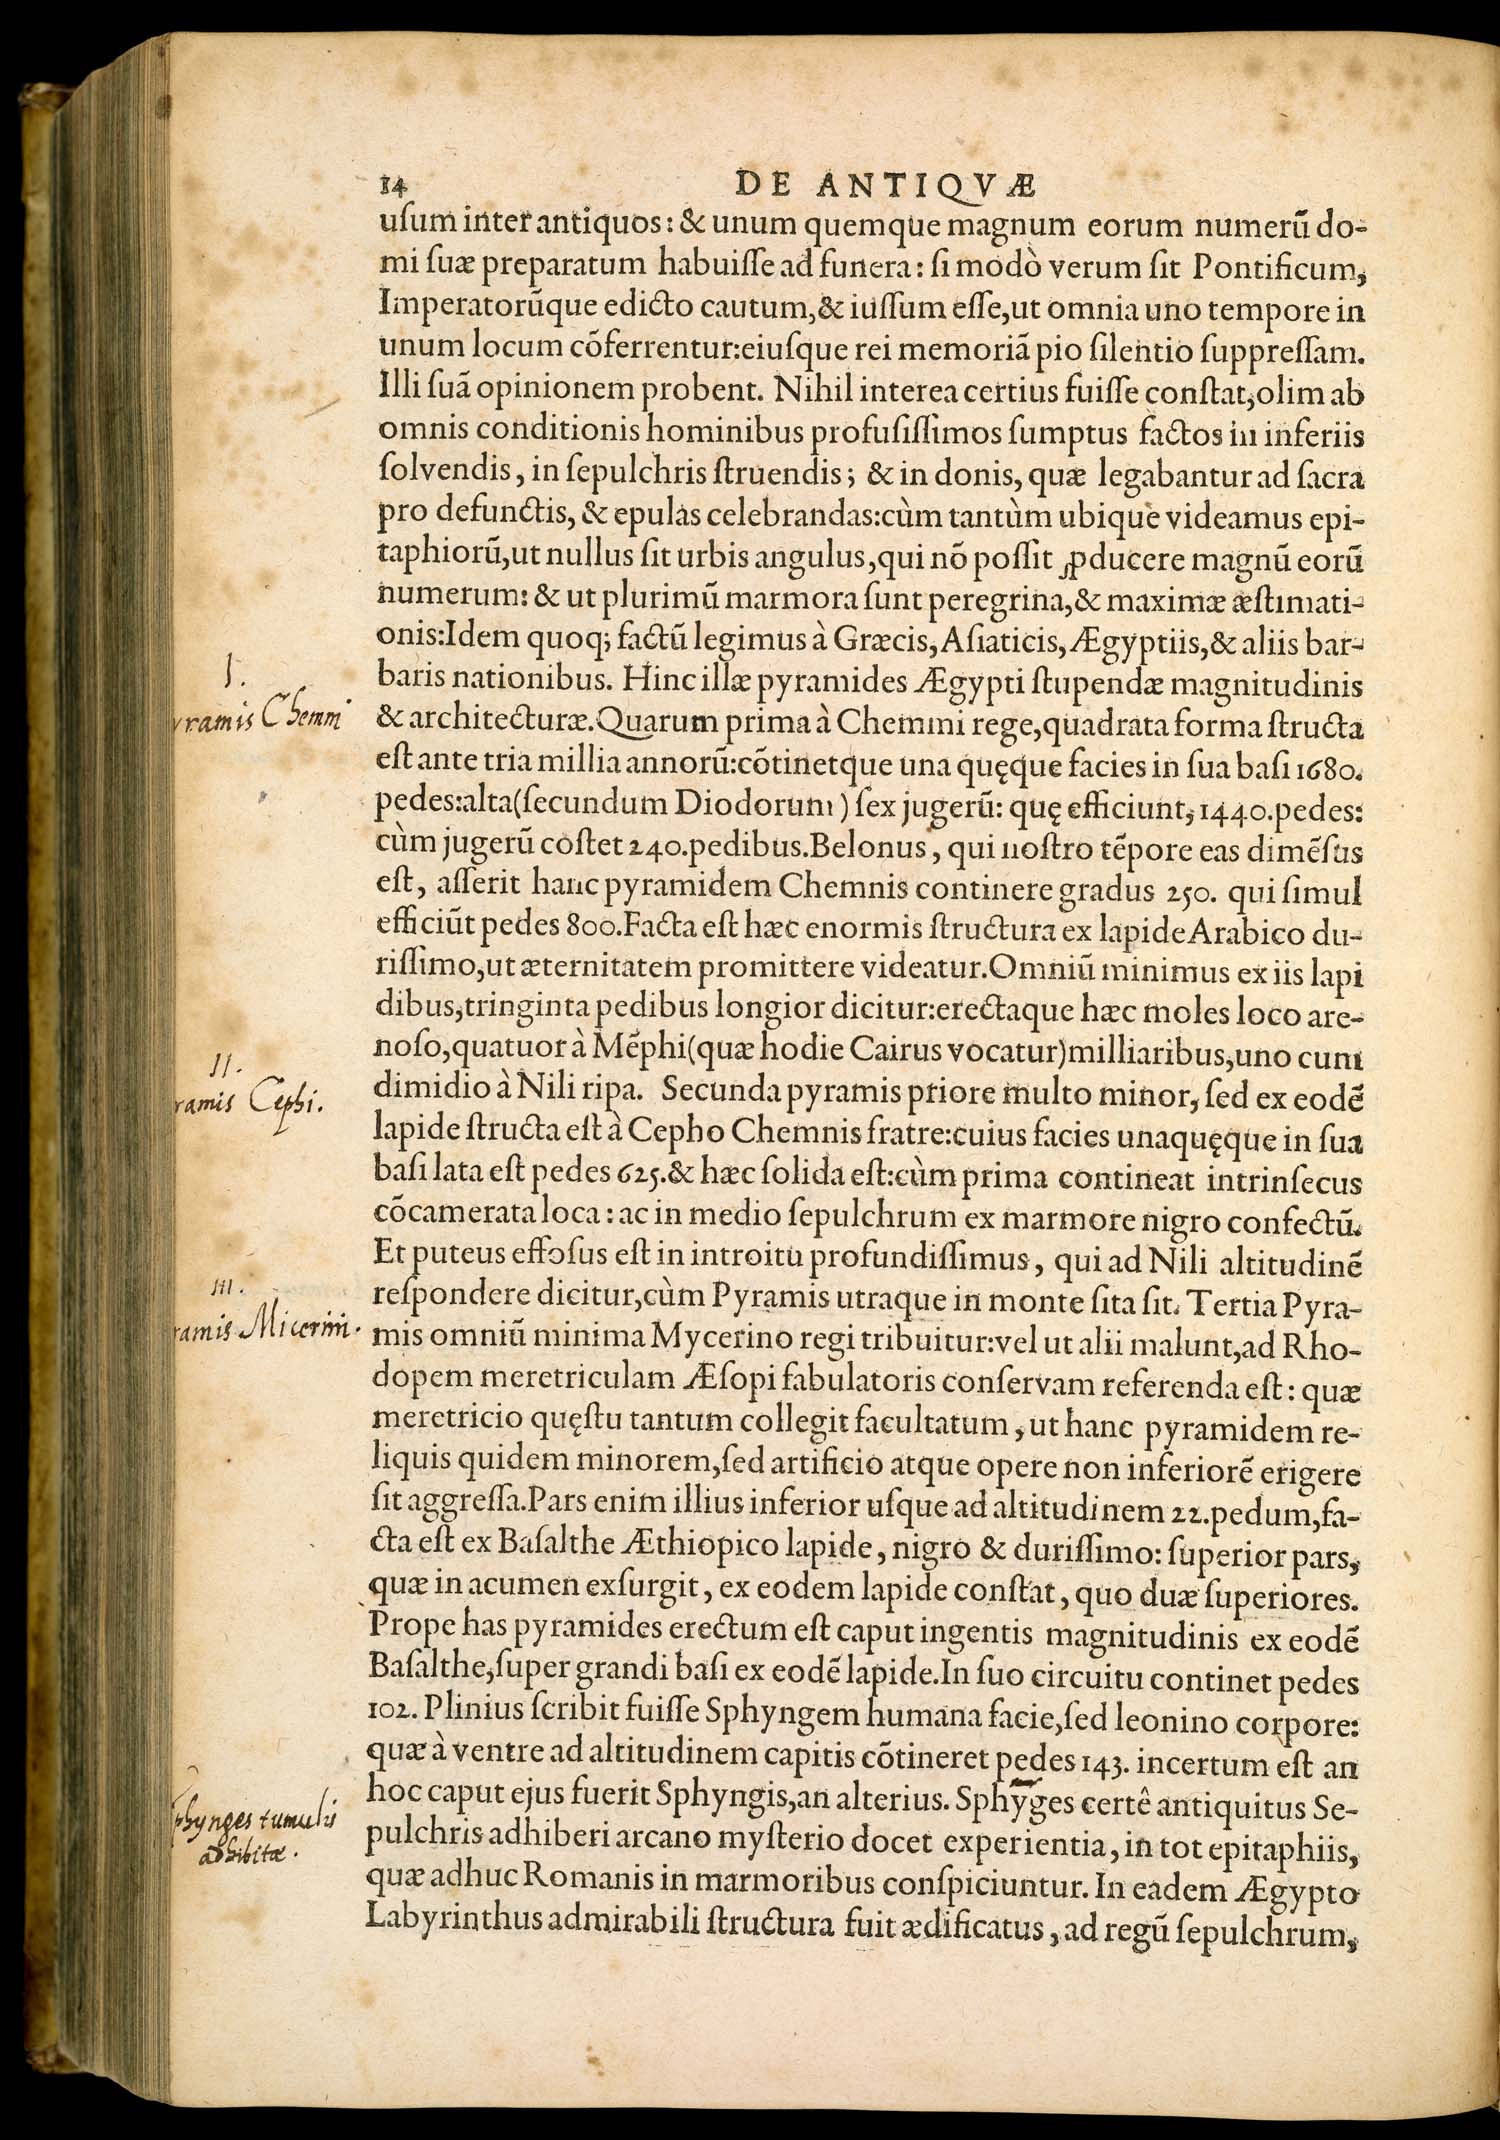 14 DE ANTIQVÆ
uſum inter antiquos: & unum quemque magnum eorum numerũ do-
mi ſuæ preparatum habuiſſe ad funera: ſi modò verum ſit Pontificum,
Imperatorũque edicto cautum, & iuſſum eſſe, ut omnia uno tempore in
unum locum cõferrentur: eiuſque rei memoriã pio ſilentio ſuppreſſam.
Illi ſuã opinionem probent. Nihil interea certius fuiſſe conſtat, olim ab
omnis conditionis hominibus profuſiſſimos ſumptus factos in inferiis
ſolvendis, in ſepulchris ſtruendis; & in donis, quæ legabantur ad ſacra
pro defunctis, & epulas celebrandas: cùm tantùm ubique videamus epi-
taphiorũ, ut nullus ſit urbis angulus, qui nõ poſſit ꝓducere magnũ eorũ
numerum: & ut plurimũ marmora ſunt peregrina, & maximæ æſtimati-
onis: Idem quoq; factũ legimus à Græcis, Aſiaticis, Ægyptiis, & aliis bar-
baris nationibus. Hinc illæ pyramides Ægypti ſtupendæ magnitudinis
I.
yramis Chemmi
& architecturæ. Quarum prima à Chemmi rege, quadrata forma ſtructa
eſt ante tria millia annorũ: cõtinetque una quęque facies in ſua baſi 1680.
pedes: alta (ſecundum Diodorum) ſex jugerũ: quę efficiunt, 1440. pedes:
cùm jugerũ coſtet 240. pedibus. Belonus, qui noſtro tẽpore eas dimẽſus
eſt, aſſerit hanc pyramidem Chemnis continere gradus 250. qui ſimul
efficiũt pedes 800. Facta eſt hæc enormis ſtructura ex lapide Arabico du-
riſſimo, ut æternitatem promittere videatur. Omniũ minimus ex iis lapi
dibus, tringinta pedibus longior dicitur: erectaque hæc moles loco are-
noſo, quatuor à Mẽphi (quæ hodie Cairus vocatur) milliaribus, uno cum
II.
ramis Cephi.
dimidio à Nili ripa. Secunda pyramis priore multo minor, ſed ex eodẽ
lapide ſtructa eſt à Cepho Chemnis fratre: cuius facies unaquęque in ſua
baſi lata eſt pedes 625. & hæc ſolida eſt: cùm prima contineat intrinſecus
cõcamerata loca: ac in medio ſepulchrum ex marmore nigro confectũ.
Et puteus effoſus eſt in introitu profundiſſimus, qui ad Nili altitudinẽ
reſpondere dicitur, cùm Pyramis utraque in monte ſita ſit. Tertia Pyra-
III.
ramis Micerini.
mis omniũ minima Mycerino regi tribuitur: vel ut alii malunt, ad Rho-
dopem meretriculam Æſopi fabulatoris conſervam referenda eſt: quæ
meretricio quęſtu tantum collegit facultatum, ut hanc pyramidem re-
liquis quidem minorem, ſed artificio atque opere non inferiorẽ erigere
ſit aggreſſa. Pars enim illius inferior uſque ad altitudinem 22. pedum, fa-
cta eſt ex Baſalthe Æthiopico lapide, nigro & duriſſimo: ſuperior pars,
quæ in acumen exſurgit, ex eodem lapide conſtat, quo duæ ſuperiores.
Prope has pyramides erectum eſt caput ingentis magnitudinis ex eodẽ
Baſalthe, ſuper grandi baſi ex eodẽ lapide. In ſuo circuitu continet pedes
102. Plinius ſcribit fuiſſe Sphyngem humana facie, ſed leonino corpore:
quæ à ventre ad altitudinem capitis cõtineret pedes 143. incertum eſt an
hoc caput ejus fuerit Sphyngis, an alterius. Sphỹges certê antiquitus Se-
phynges tumulis
adhibitæ.
pulchris adhiberi arcano myſterio docet experientia, in tot epitaphiis,
quæ adhuc Romanis in marmoribus conſpiciuntur. In eadem Ægypto
Labyrinthus admirabili ſtructura fuit ædificatus, ad regũ ſepulchrum,